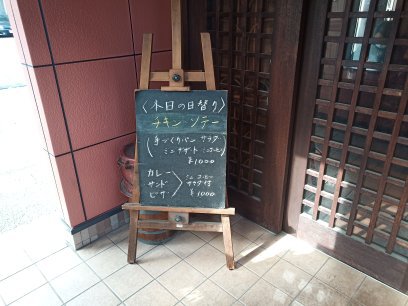 〈本日の日替り〉
チキン ソテー
(手づくりパン サラダ
ミニデザート ミニコーヒー)
¥1000
カレー
サンド
ピザ
ミニコーヒー
サラダ付
¥1000